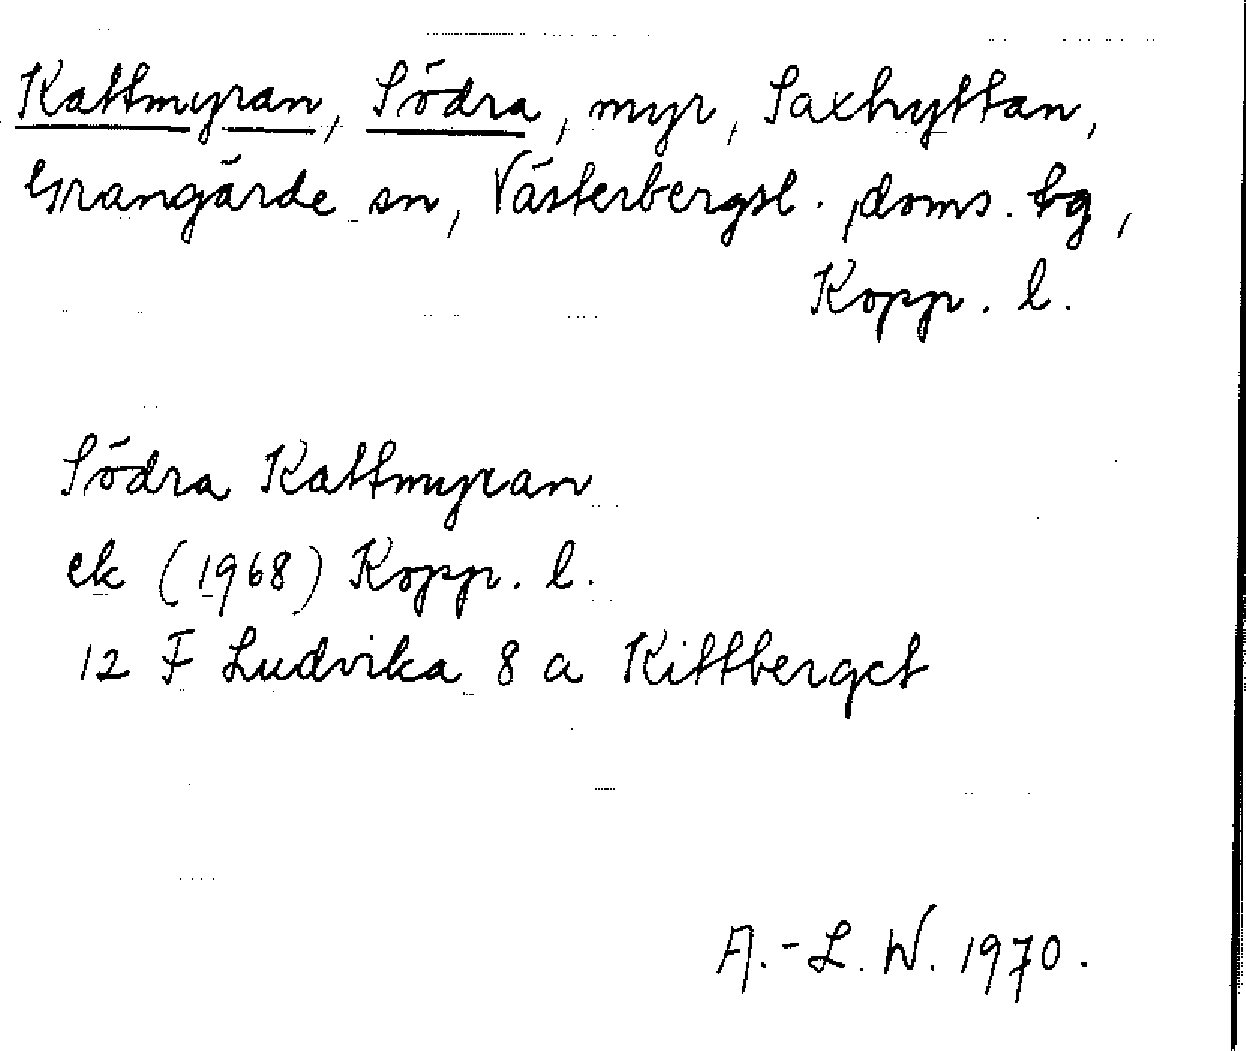 Kattmyran, Södra, myr, Saxhyttan,
Grangärde sn, Västerbergsl. doms. tg,
Kopp. l.
Södra Kattmyran
ek (1968) Kopp. l.
12 F Ludvika 8 a Kittberget
A.-L. W. 1970.